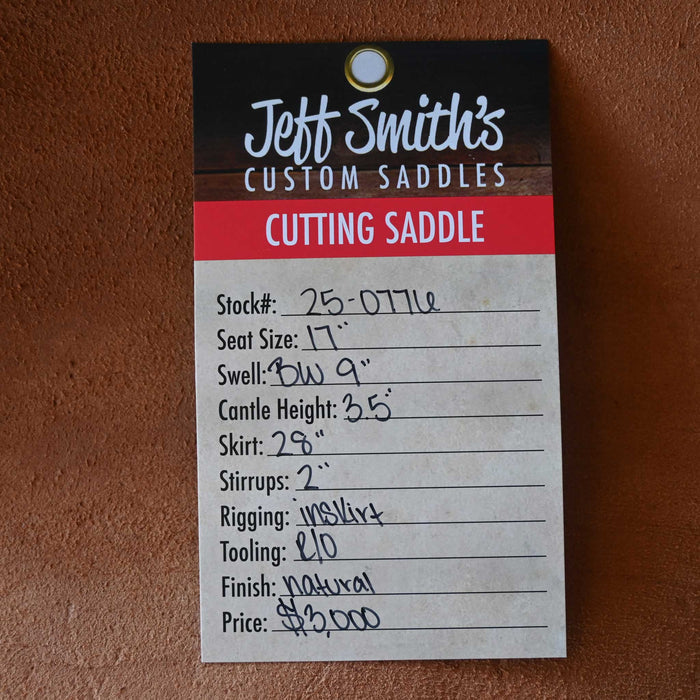 Jeff Smith's
CUSTOM SADDLES
CUTTING SADDLE
Stock#: 25-0776
Seat Size: 17"
Swell: BW 9"
Cantle Height: 3.5"
Skirt: 28"
Stirrups: 2"
Rigging: inskirt
Tooling: R/O
Finish: natural
Price: $3,000